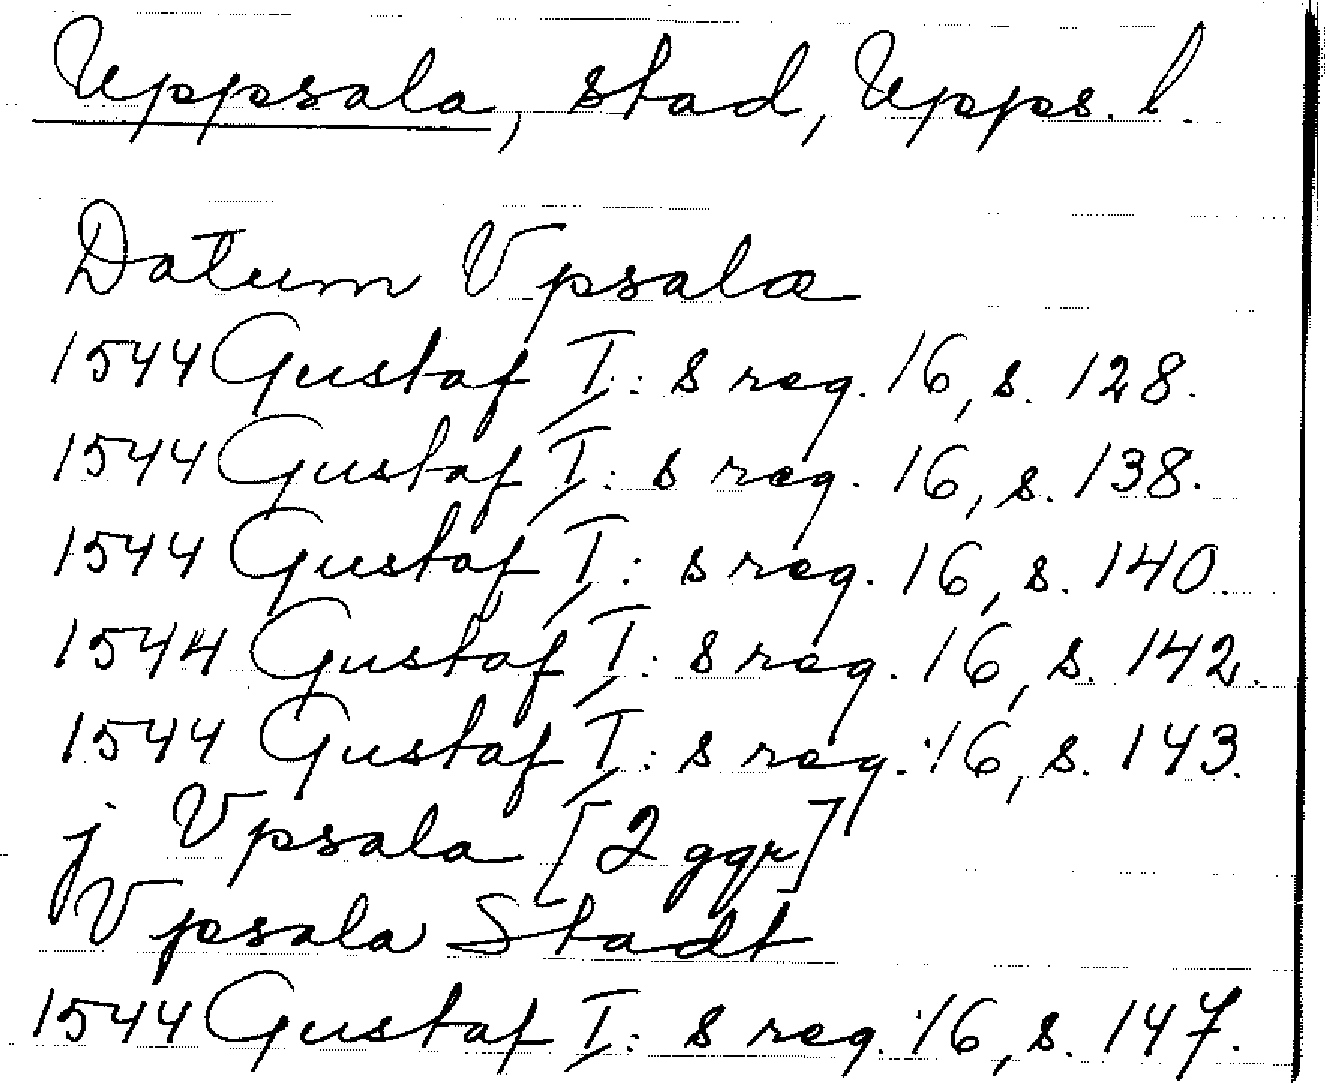 Uppsala, stad, Upps. l.
Datum Vpsalæ
1544 Gustaf I: s reg. 16, s. 128.
1544 Gustaf I: s reg. 16, s. 138.
1544 Gustaf I: s reg. 16, s. 140.
1544 Gustaf I: s reg. 16, s. 142.
1544 Gustaf I: s reg. 16, s. 143.
j Vpsala [2 ggr]
Vpsala Stadt
1544 Gustaf I: s reg. 16, s. 147.